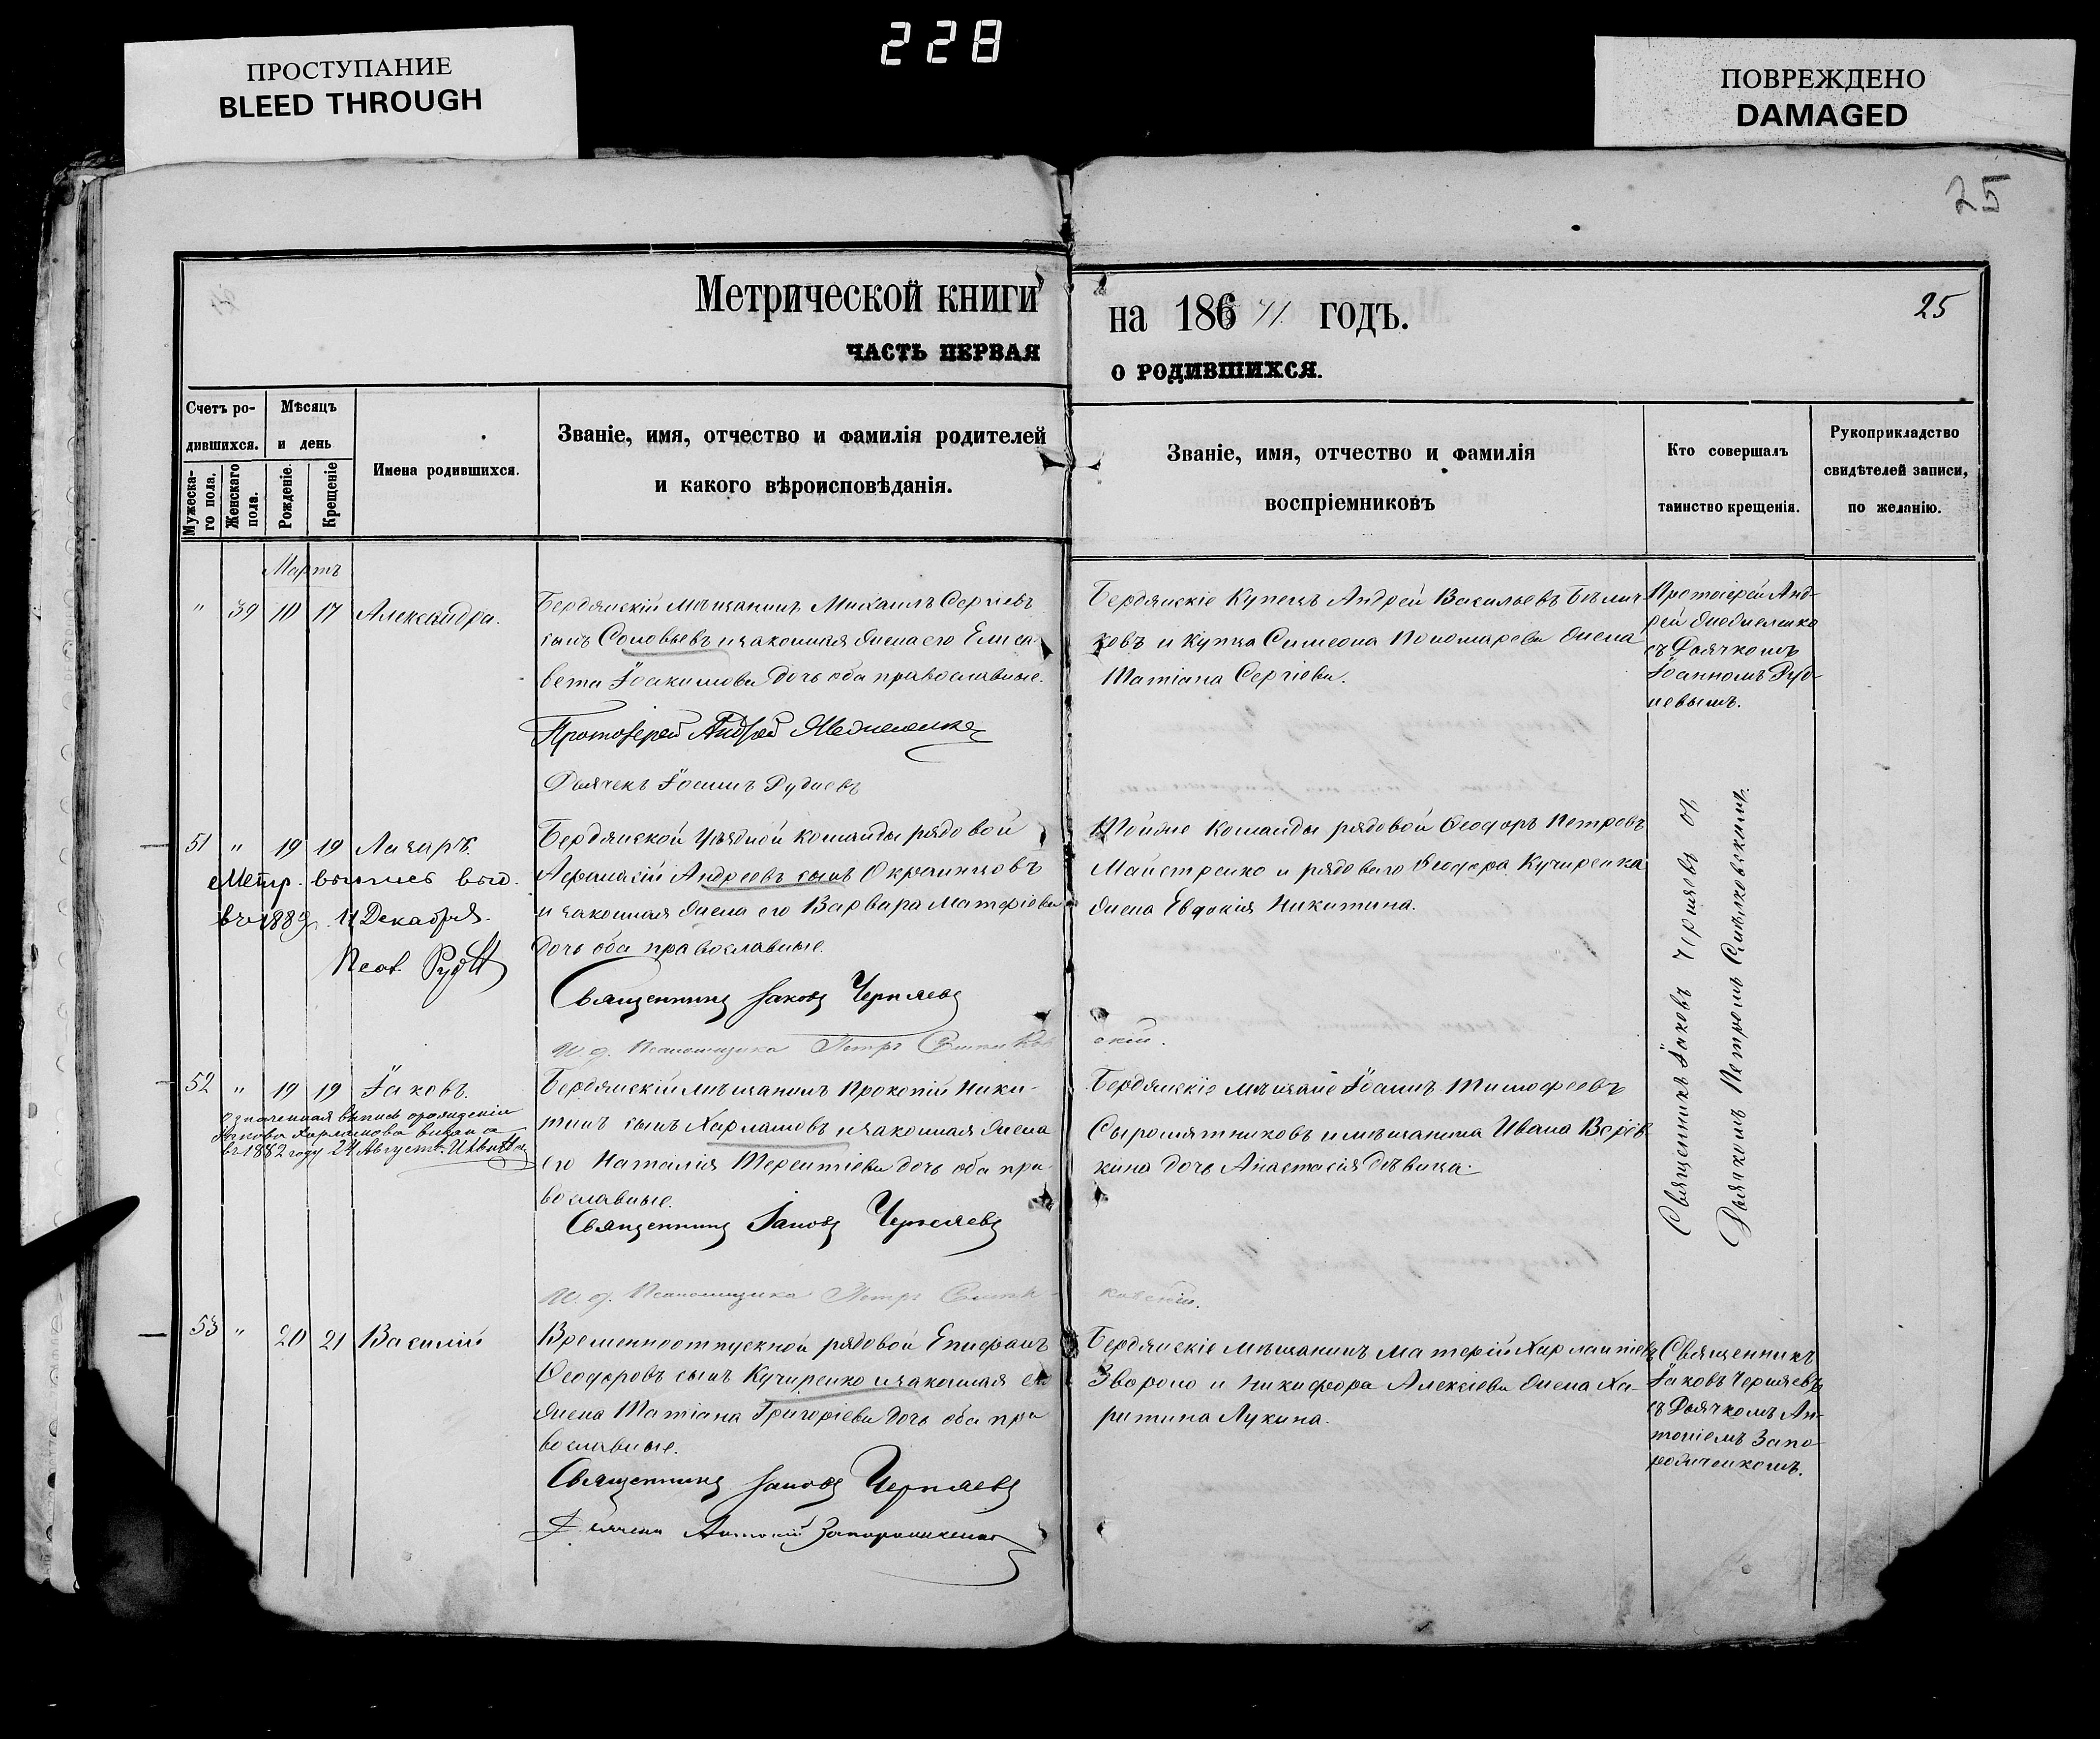 228
ПРОСТУПАНИЕ
BLEED THROUGH
ПОВРЕЖДЕНО
DAMAGED
25
Метрической книги на 186 71 годъ.
25
ЧАСТЬ ПЕРВАЯ О РОДИВШИХСЯ.
Счетъ ро-
дившихся.
Мужеска-
го пола.
Женскаго
пола.
Мѣсяцъ
и день
Рожденіе.
Крещеніе
Имена родившихся.
Званіе, имя, отчество и фамилія родителей
и какого вѣроисповѣданія.
Званіе, имя, отчество и фамилія
воспріемниковъ
Кто совершалъ
таинство крещенія.
Рукоприкладство
свидѣтелей записи,
по желанію.
Мартъ
" 39 10 17 Александра.
Бердянскій мѣщанинъ Михаилъ Сергіевъ
сынъ Соловьевъ и законная жена его Елиса-
вета Іоакимова дочь оба православные.
Протоіерей Андрей
Дьячекъ Іоаннъ Рудневъ
Бердянскіе Купецъ Андрей Васильевъ
ковъ и купца Симеона Пономарева жена
Татіана Сергіева.
Протоіерей Анд-
рей
съ Дьячкомъ
Іоанномъ Руд-
невымъ.
51 " 19 19 Лазарь.
Метр. выпись выд.
въ 1889 г. 11 Декабря.
Псал.
Бердянской Уѣздной команды рядовой
Афанасій Андреевъ сынъ
и законная жена его Варвара Матфіева
дочь оба православные.
Священникъ Іаковъ Черняевъ
И. д. Псаломщика Петръ
скій.
Тойже команды рядовой Ѳеодоръ Петровъ
Майстренко и рядового Ѳеодора Кучиренка
жена Евдокія Никитина.
Священникъ Іаковъ Черняевъ съ
Дьячкомъ Петромъ
52 " 19 19 Іаковъ.
Означенная выпись о рожденіи
Якова Харламова выдана
въ 1882 году 24 Август.
Бердянскій мѣщанинъ Прокопій Ники-
тинъ сынъ Харламовъ и законная жена
его Наталія Терентіева дочь оба пра-
вославные.
Священникъ Іаковъ Черняевъ
И. д. Псаломщика Петръ
ковскій.
Бердянскіе мѣщане Іоаннъ Тимофеевъ
Сыромятниковъ и мѣщанина Ивана Верев-
кина дочь Анастасія дѣвица.
53 " 20 21 Василій
Временноотпускной рядовой Епифанъ
Ѳеодоровъ сынъ Кучиренко и законная его
жена Татіана Григоріева дочь оба пра-
вославные.
Священникъ Іаковъ Черняевъ
Дьячекъ Антоній Запорожченко
Бердянскіе мѣщанинъ Матфій Харлампіевъ
и Никифора Алексіева жена Ха-
ритина Лукина.
Священникъ
Іаковъ Черняевъ
съ Дьячкомъ Ан-
тоніемъ Запо-
рожченкомъ.